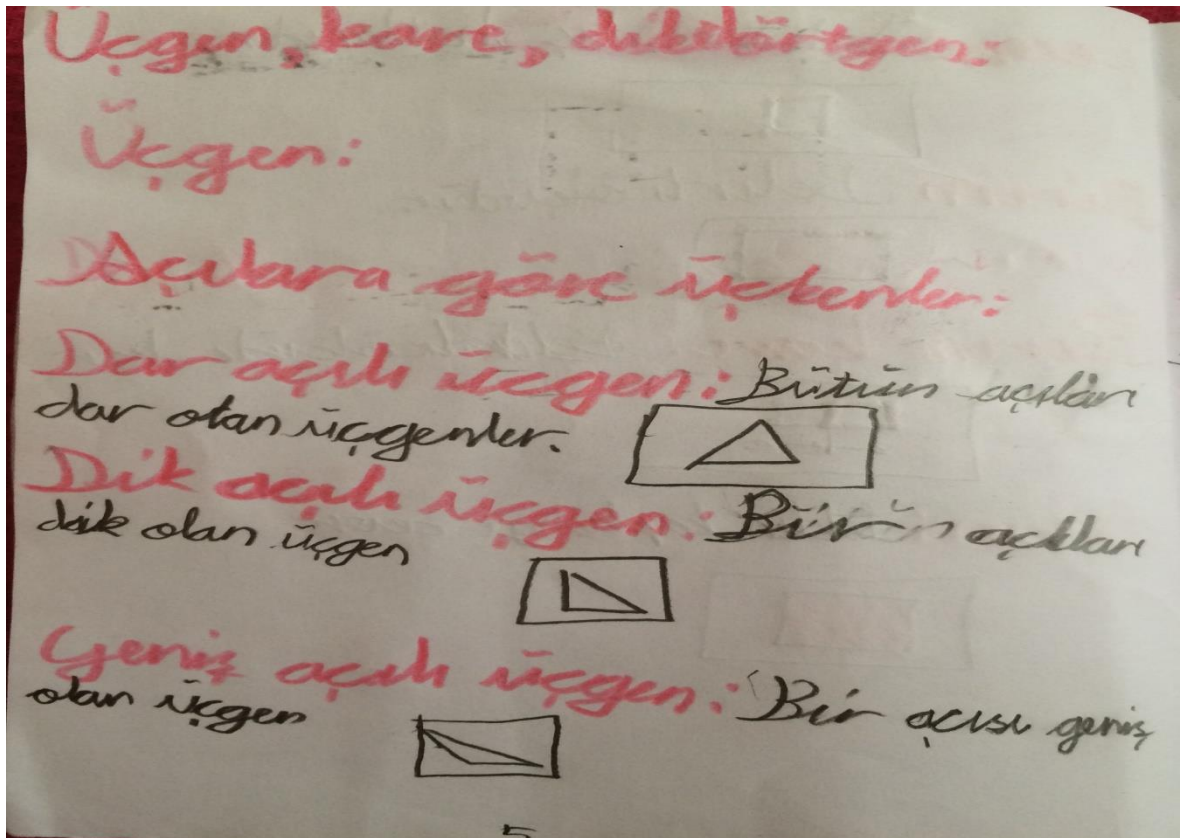 Üçgen, kare, dikdörtgen:
Üçgen:
Açılara göre üçkenler:
Dar açılı üçgen: Bütün açıları
dar olan üçgenler.
Dik açılı üçgen: Bir açıkları
dik olan üçgen
Geniş açılı üçgen: Bir açısı geniş
olan üçgen
5